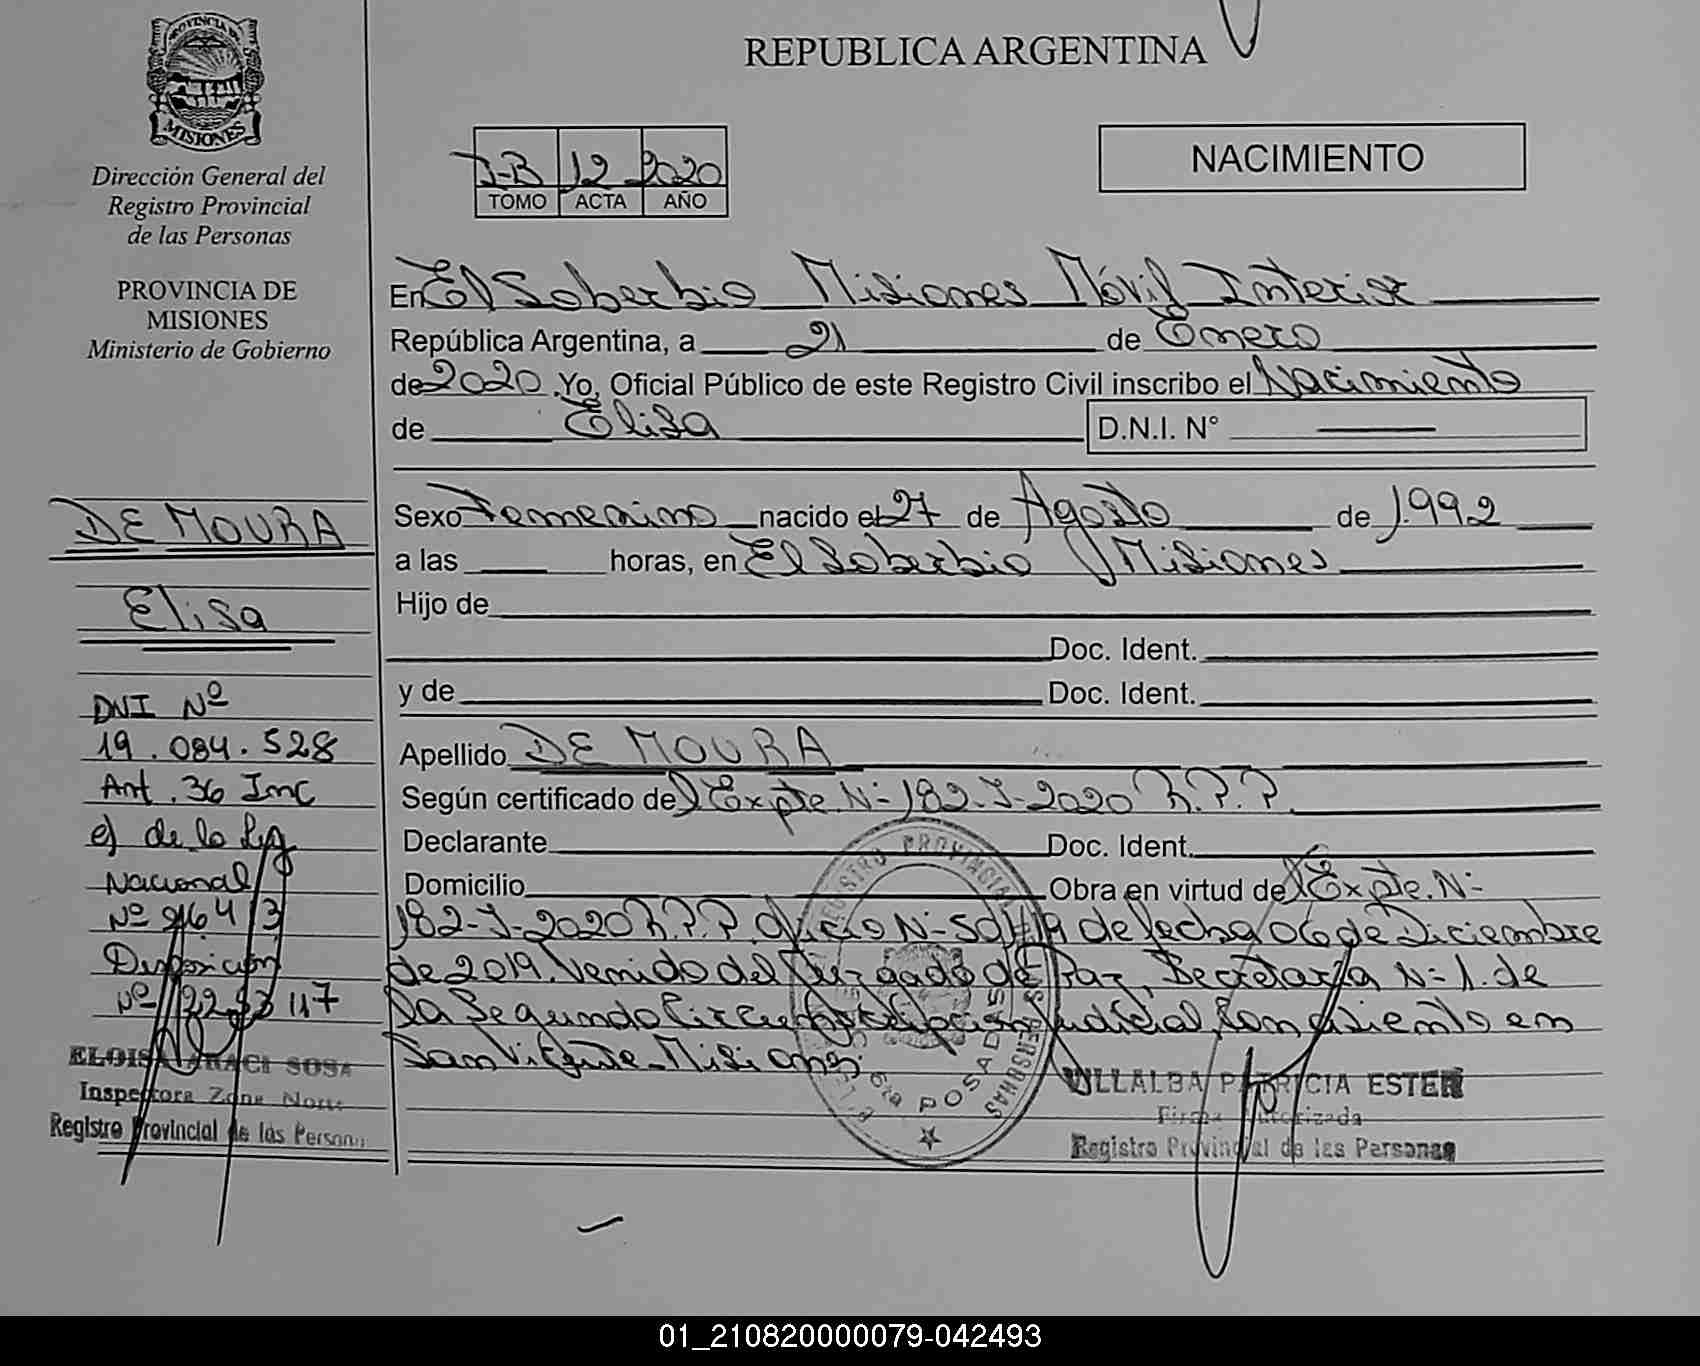 PROVINCIA DE
MISIONES
Dirección General del
Registro Provincial
de las Personas
PROVINCIA DE
MISIONES
Ministerio de Gobierno
DE MOURA
Elisa
DNI Nº
19.084.528
Art. 36 Inc
e) de la Ley
Nacional
Nº 26413
Disposición
Nº
ELOISA ARACI SOSA
Inspectora Zona Norte
Registro Provincial de las Personas
REPUBLICA ARGENTINA
NACIMIENTO
I-B 12 2020
TOMO ACTA AÑO
En El Soberbio Misiones Móvil Interior
República Argentina, a 21 de Enero
de 2020 .Yo, Oficial Público de este Registro Civil inscribo el Nacimiento
de Elisa D.N.I. N°
Sexo Femenino nacido el 27 de Agosto de 1.992
a las horas, en El Soberbio Misiones
Hijo de
Doc. Ident.
y de Doc. Ident.
Apellido DE MOURA
Según certificado del Expte. N- 182-I-2020 R.P.P.
Declarante Doc. Ident.
Domicilio Obra en virtud del Expte. N-
182-I-2020 R.P.P. Oficio N- de fecha 06 de Diciembre
de 2019. Venido del Juzgado de Paz, Secretaría N- 1. de
la Segunda Circunscripción Judicial, con asiento en
San Vicente-Misiones.
REGISTRO PROVINCIAL DE LAS PERSONAS
POSADAS
VILLALBA PATRICIA ESTER
Firma Autorizada
Registro Provincial de las Personas
01_210820000079-042493